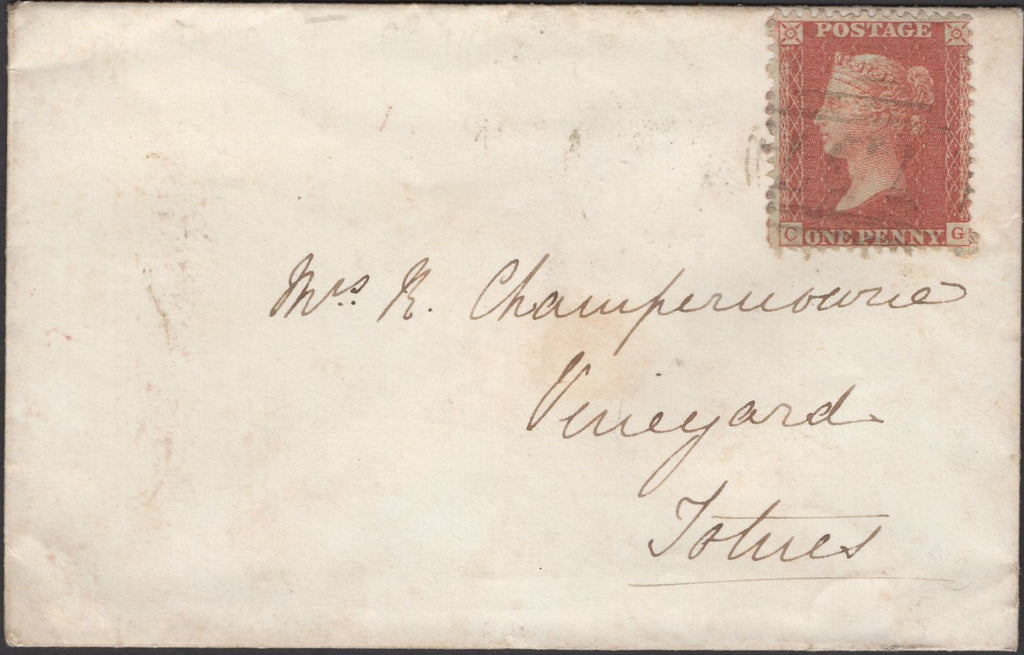 POSTAGE
C ONE PENNY G
Mrs. R. Champernowne
Vineyard
Totnes